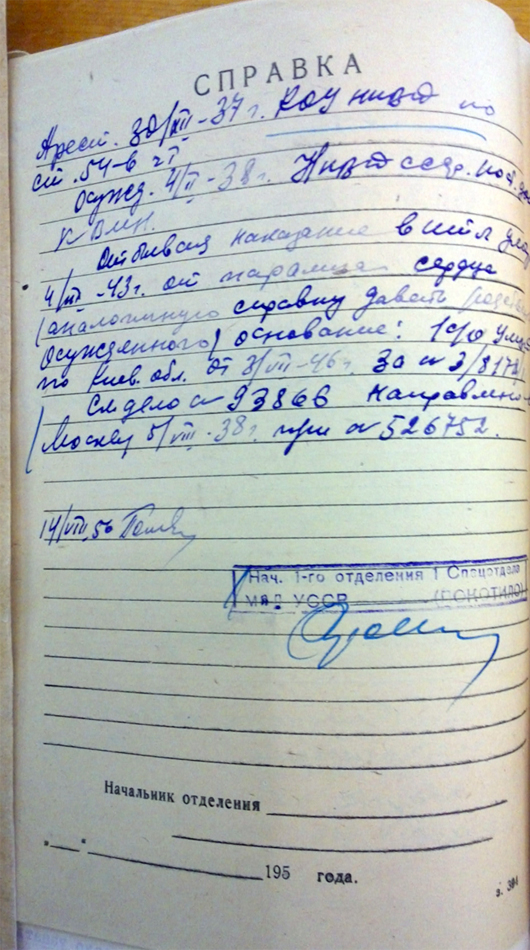 СПРАВКА
Арест. 30/XII-37 г. КОУ НКВД по
ст. 54-6 ч I
Осужд. 4/II-38 г. НКВД СССР
К ВМН.
Отбывая наказание в ИТЛ умер
4/III-43 г. от паралича сердца
(аналогичную справку давать
осужденного) основание:
по Киев. обл. от 3/VII-46 г. за №
См дело № 93866 направлено в
Москву 5/VIII-38 г. при № 526752.
14/VIII 56
Нач. 1-го отделения 1 Спецотдела
МВД УССР (ЛОКОТИЛО)
Начальник отделения
„ “ 195 года.